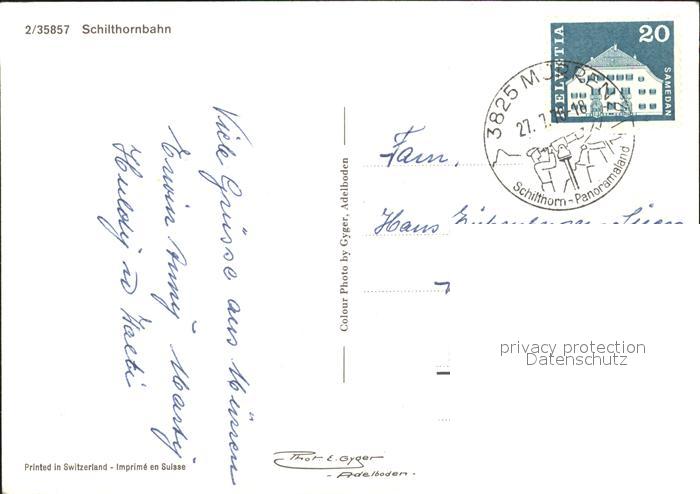 2/35857 Schilthornbahn
HELVETIA
20
SAMEDAN
3825 MÜRREN
27. 7.
Schilthorn-Panoramaland
Viele Grüsse aus Mürren
Erwin Anny Marty
Huldy u
Colour Photo by Gyger, Adelboden
Fam.
Hans
privacy protection
Datenschutz
Printed in Switzerland - Imprimé en Suisse
Phot. E. Gyger
- Adelboden -